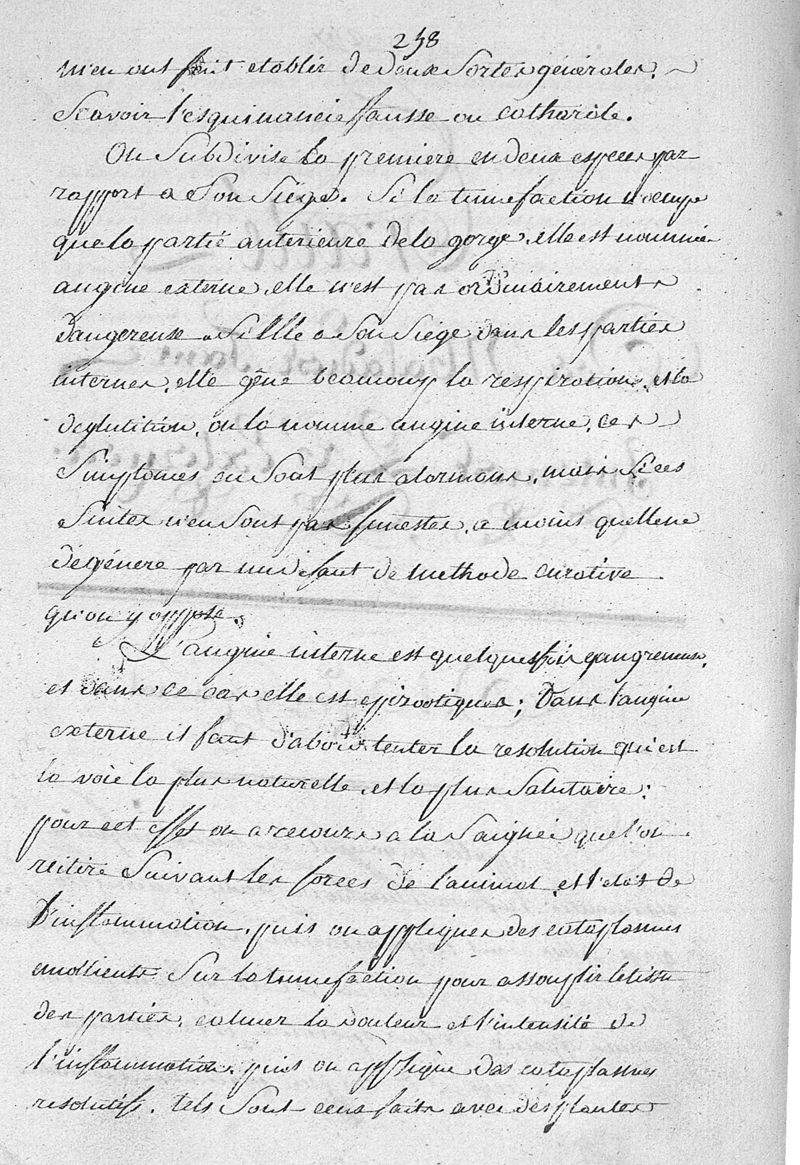 258
m'en ont fait etablir de deux Sortes générales.
Scavoir l'esquinancie fausse ou catharale.
On Subdivise la premiere en deux especes par
rapport a Son Siége. Si la tumefaction n'occupe
que la partié anterieure de la gorge, elle est nommée
angine externe, elle n'est pas ordinairement
dangereuse Si Elle a Son Siége dans les parties
internes, elle gêne beaucoup la respiration, et la
deglutition, on la nomme angine interne, ces
Simptomes en Sont plus alarmans, mais Si ces
Suites n'en Sont pas funestes, a moins quelle ne
dégénere par un defaut de methode curative
qu'on y oppose.
L'angine interne est quelques fois gangreneuse,
et dans ce cas elle est epizootique; Dans l'angine
externe il faut d'abord tenter la resolution qui est
la voie la plus naturelle, et la plus Salutaire;
pour cet effet on a recours a la Saignée que l'on
reitire Suivant les forces de l'animal, et l'etat de
D'inflammation, puis on appliques des cataplasmes
emollients Sur la tumefaction pour assouplir le tissu
des parties, calmer la douleur et l'intensité de
l'inflammation, puis on applique des cataplasmes
resolutifs, tels Sont ceux faits avec des plantes